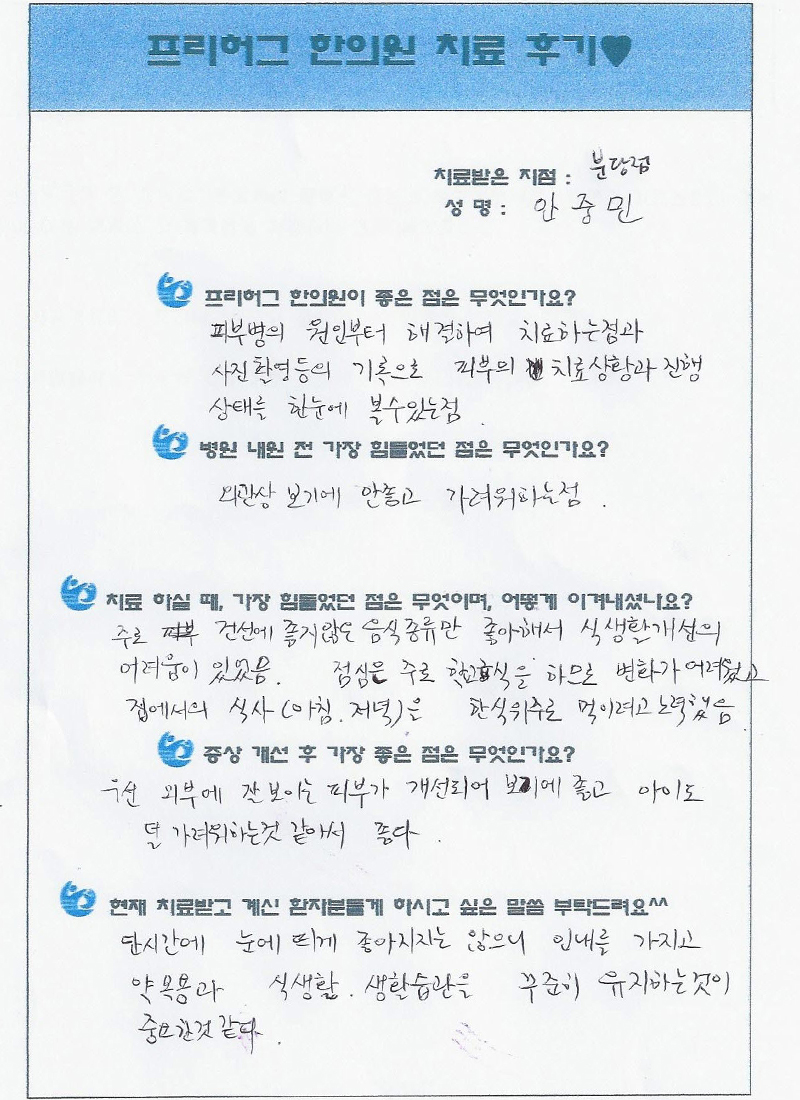 프리허그 한의원 치료 후기♥
치료받은 지점 : 분당점
성 명 : 안중민
프리허그 한의원이 좋은 점은 무엇인가요?
피부병의 원인부터 해결하여 치료하는점과
사진촬영등의 기록으로 피부의 치료상황과 진행
상태를 한눈에 볼수있는점
병원 내원 전 가장 힘들었던 점은 무엇인가요?
외관상 보기에 안좋고 가려워하는점.
치료 하실 때, 가장 힘들었던 점은 무엇이며, 어떻게 이겨내셨나요?
주로 건선에 좋지않은 음식종류만 좋아해서 식생활개선의
어려움이 있었음. 점심은 주로 식을 하므로 변화가 어려웠고
집에서의 식사(아침.저녁)은 한식위주로 먹이려고 노력했음
증상 개선 후 가장 좋은 점은 무엇인가요?
우선 외부에 잘보이는 피부가 개선되어 보기에 좋고 아이도
덜 가려워하는것 같아서 좋다.
현재 치료받고 계신 환자분들게 하시고 싶은 말씀 부탁드려요^^
단시간에 눈에 띄게 좋아지지는 않으니 인내를 가지고
약복용과 식생활. 생활습관을 꾸준히 유지하는것이
중요한것 같다.